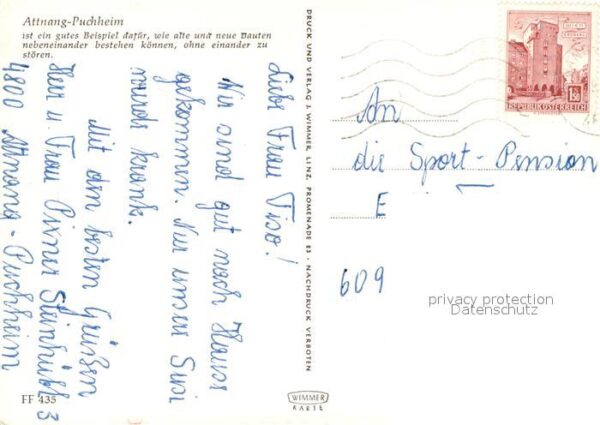 Attnang-Puchheim
ist ein gutes Beispiel dafür, wie alte und neue Bauten
nebeneinander bestehen können, ohne einander zu
stören.
Liebe Frau Tiso!
Wir sind gut nach Hause
gekommen. Nur unsere Susi
wurde krank.
Mit den besten Grüßen
Herr u. Frau Pixner Steinhübl 3
4800 Attnang-Puchheim
FF 435
DRUCK UND VERLAG J. WIMMER, LINZ, PROMENADE 23 - NACHDRUCK VERBOTEN
WIMMER
KARTE
1.50
REPUBLIK ÖSTERREICH
An
die Sport-Pension
E
609
privacy protection
Datenschutz